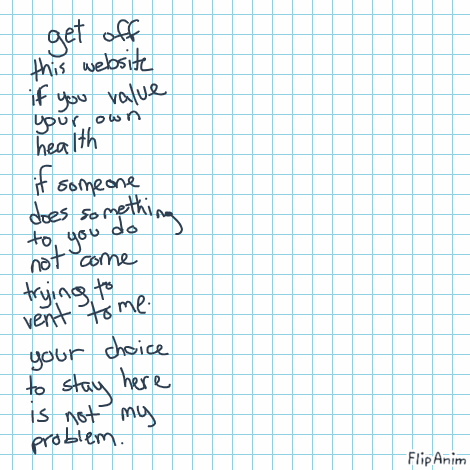 get off
this website
if you value
your own
health
if someone
does something
to you do
not come
trying to
vent to me.
your choice
to stay here
is not my
problem.
FlipAnim